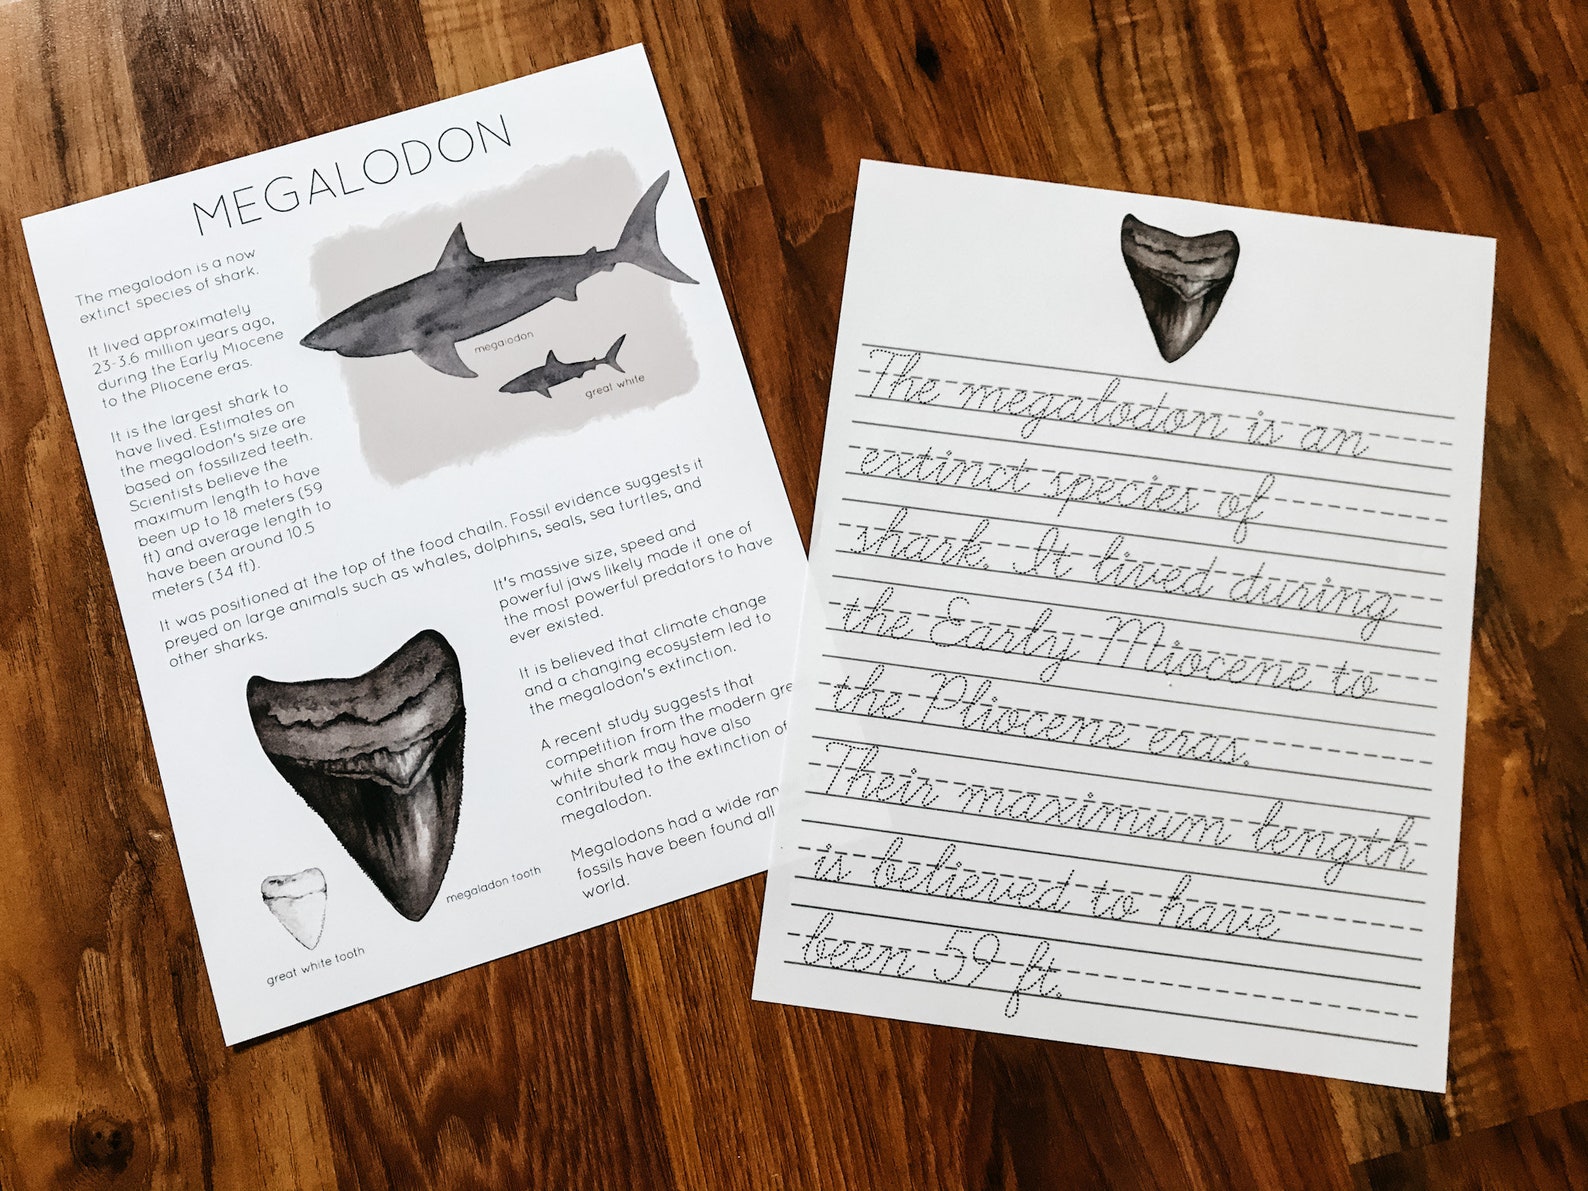 MEGALODON
The megalodon is a now
extinct species of shark.
It lived approximately
23-3.6 million years ago,
during the Early Miocene
to the Pliocene eras.
It is the largest shark to
have lived. Estimates on
the megalodon's size are
based on fossilized teeth.
Scientists believe the
maximum length to have
been up to 18 meters (59
ft) and average length to
have been around 10.5
meters (34 ft).
megalodon
great white
It was positioned at the top of the food chailn. Fossil evidence suggests it
preyed on large animals such as whales, dolphins, seals, sea turtles, and
other sharks.
It's massive size, speed and
powerful jaws likely made it one of
the most powerful predators to have
ever existed.
It is believed that climate change
and a changing ecosystem led to
the megalodon's extinction.
A recent study suggests that
competition from the modern
white shark may have also
contributed to the extinction of
megalodon.
Megalodons had a wide
fossils have been found all
world.
megaladon tooth
great white tooth
The megalodon is an
extinct species of
shark. It lived during
the Early Miocene to
the Pliocene eras.
Their maximum length
is believed to have
been 59 ft.